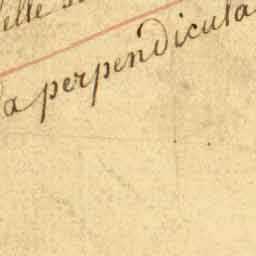 elle
la perpendicula